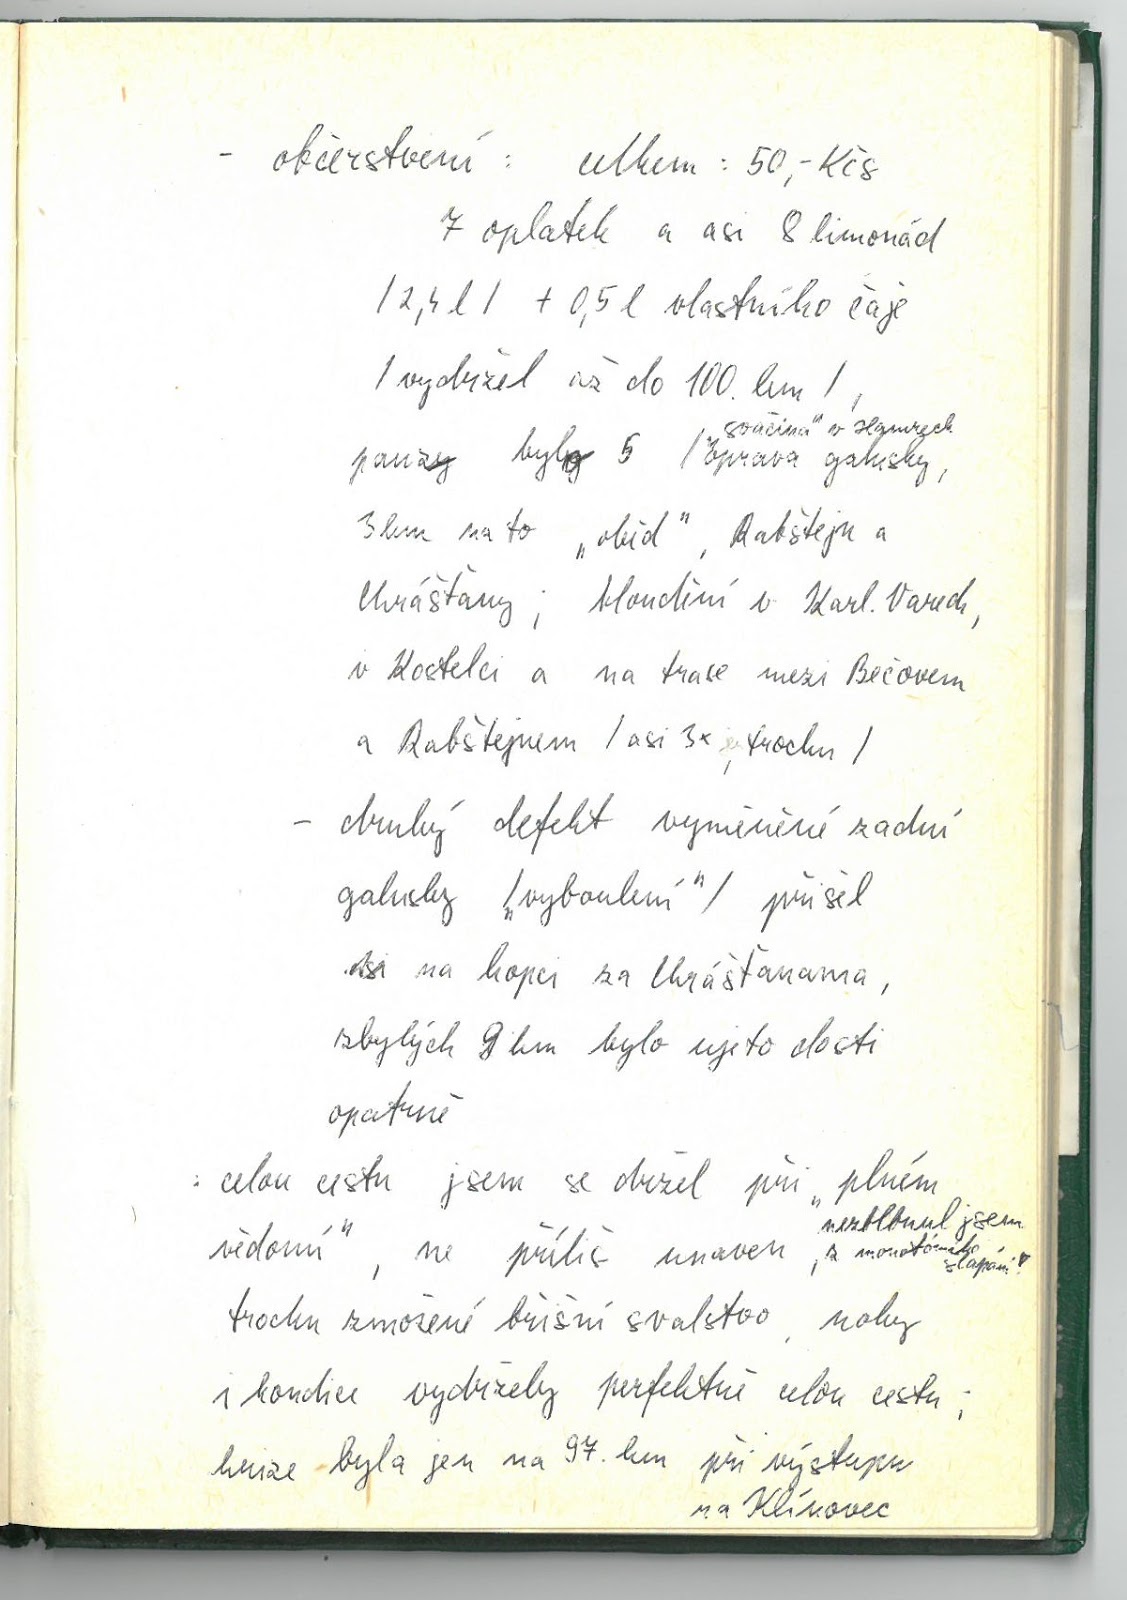 - občerstvení : celkem : 50,- Kčs
7 oplatek a asi 8 limonád
/ 2,4 l / + 0,5 l vlastního čaje
/ vydržel až do 100. km / ,
„svačina" v
pauzy bylo 5 / oprava galusky,
3 km na to „oběd", Rabštejn a
Chrášťany ; bloudění v Karl. Varech,
v Kostelci a na trase mezi Bečovem
a Rabštejnem / asi 3x trochu /
- druhý defekt vyměněné zadní
galusky /„vyboulení"/ přišel
asi na kopci za Chrášťanama,
zbylých 9 km bylo ujeto dosti
opatrně
: celou cestu jsem se držel při „plném
nezblbnul jsem
vědomí", ne příliš unaven, z monotónního
šlapání!
trochu zmožené břišní svalstvo, nohy
i kondice vydržely perfektně celou cestu ;
krize byla jen na 97. km při výstupu
na Klínovec